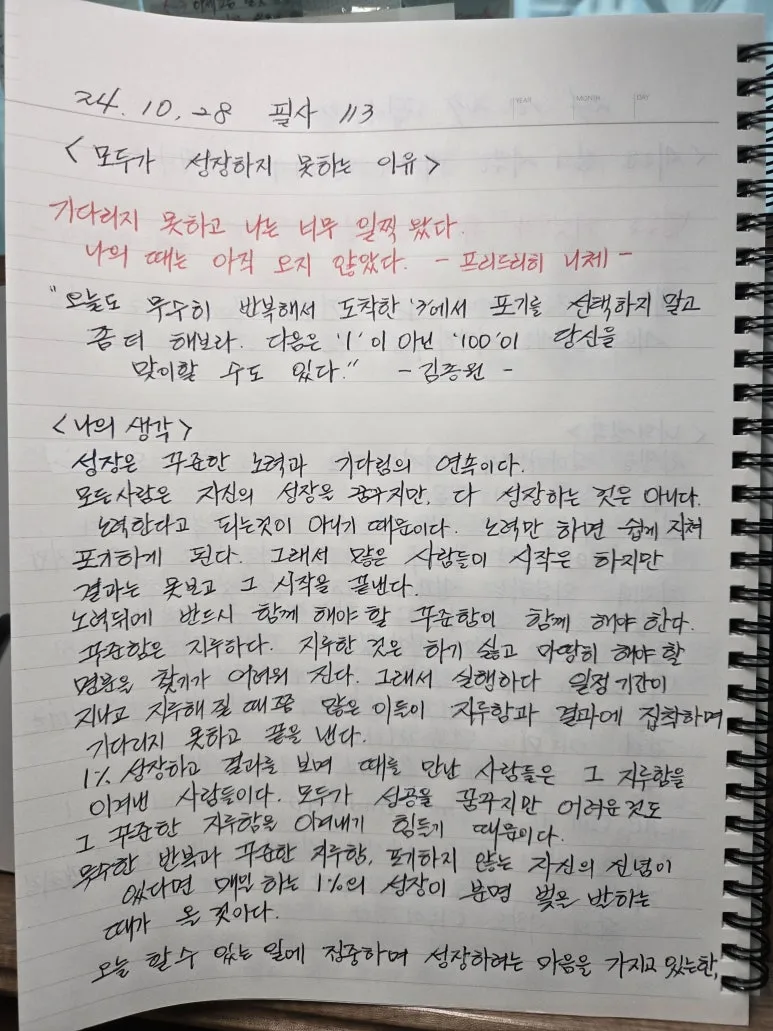 YEAR MONTH DAY
24. 10. 28 필사 113
<모두가 성장하지 못하는 이유>
기다리지 못하고 나는 너무 일찍 왔다.
나의 때는 아직 오지 않았다. - 프리드리히 니체 -
"오늘도 무수히 반복해서 도착한 '?'에서 포기를 선택하지 말고
좀 더 해보라. 다음은 '1'이 아닌 '100'이 당신을
맞이할 수도 있다." - 김종원 -
<나의 생각>
성장은 꾸준한 노력과 기다림의 연속이다.
모든사람은 자신의 성장을 꿈꾸지만, 다 성장하는 것은 아니다.
노력한다고 되는것이 아니기 때문이다. 노력만 하면 쉽게 지쳐
포기하게 된다. 그래서 많은 사람들이 시작은 하지만
결과는 못보고 그 시작을 끝낸다.
노력뒤에 반드시 함께 해야 할 꾸준함이 함께 해야 한다.
꾸준함은 지루하다. 지루한 것은 하기 싫고 마땅히 해야 할
명분을 찾기가 어려워 진다. 그래서 실행하다 일정 기간이
지나고 지루해 질 때쯤 많은 이들이 지루함과 결과에 집착하며
기다리지 못하고 끝을 낸다.
1% 성장하고 결과를 보며 때를 만난 사람들은 그 지루함을
이겨낸 사람들이다. 모두가 성공을 꿈꾸지만 어려운것도
그 꾸준한 지루함을 이겨내기 힘들기 때문이다.
무수한 반복과 꾸준한 지루함, 포기하지 않는 자신의 신념이
있다면 매일 하는 1%의 성장이 분명 빛을 발하는
때가 올 것이다.
오늘 할 수 있는 일에 집중하며 성장하려는 마음을 가지고 있는한,